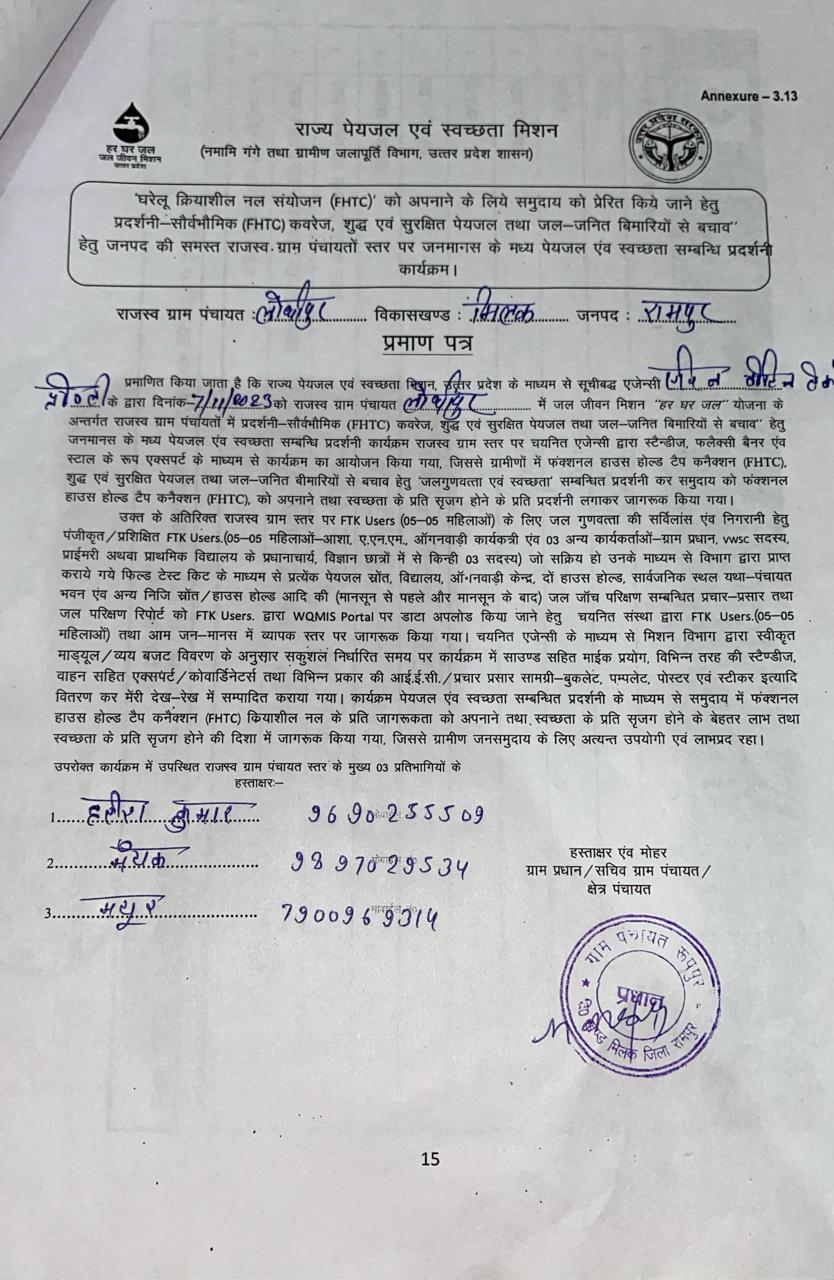 Annexure – 3.13
हर घर जल
जल जीवन मिशन
उत्तर प्रदेश
राज्य पेयजल एवं स्वच्छता मिशन
(नमामि गंगे तथा ग्रामीण जलापूर्ति विभाग, उत्तर प्रदेश शासन)
उत्तर प्रदेश सरकार
'घरेलू क्रियाशील नल संयोजन (FHTC)' को अपनाने के लिये समुदाय को प्रेरित किये जाने हेतु
प्रदर्शनी–सौर्वभौमिक (FHTC) कवरेज, शुद्ध एवं सुरक्षित पेयजल तथा जल–जनित बिमारियों से बचाव"
हेतु जनपद की समस्त राजस्व ग्राम पंचायतों स्तर पर जनमानस के मध्य पेयजल एंव स्वच्छता सम्बन्धि प्रदर्शनी
कार्यक्रम।
राजस्व ग्राम पंचायत : लोधीपुर विकासखण्ड : मिलक जनपद : रामपुर
प्रमाण पत्र
प्रमाणित किया जाता है कि राज्य पेयजल एवं स्वच्छता मिशन, उत्तर प्रदेश के माध्यम से सूचीबद्ध एजेन्सी
प्रा०लि० के द्वारा दिनांक-7/11/2023 को राजस्व ग्राम पंचायत लोधीपुर में जल जीवन मिशन "हर घर जल" योजना के
अन्तर्गत राजस्व ग्राम पंचायतों में प्रदर्शनी–सौर्वभौमिक (FHTC) कवरेज, शुद्ध एवं सुरक्षित पेयजल तथा जल–जनित बिमारियों से बचाव" हेतु
जनमानस के मध्य पेयजल एंव स्वच्छता सम्बन्धि प्रदर्शनी कार्यक्रम राजस्व ग्राम स्तर पर चयनित एजेन्सी द्वारा स्टैन्डीज, फलैक्सी बैनर एंव
स्टाल के रूप एक्सपर्ट के माध्यम से कार्यक्रम का आयोजन किया गया, जिससे ग्रामीनों में फंक्शनल हाउस होल्ड टैप कनैक्शन (FHTC),
शुद्ध एवं सुरक्षित पेयजल तथा जल–जनित बीमारियों से बचाव हेतु 'जलगुणवत्ता एवं स्वच्छता' सम्बन्धित प्रदर्शनी कर समुदाय को फंक्शनल
हाउस होल्ड टैप कनैक्शन (FHTC), को अपनाने तथा स्वच्छता के प्रति सृजग होने के प्रति प्रदर्शनी लगाकर जागरूक किया गया।
उक्त के अतिरिक्त राजस्व ग्राम स्तर पर FTK Users (05–05 महिलाओं) के लिए जल गुणवत्ता की सर्विलांस एंव निगरानी हेतु
पंजीकृत/प्रशिक्षित FTK Users.(05–05 महिलाओं–आशा, ए.एन.एम., ऑगनवाड़ी कार्यकत्री एंव 03 अन्य कार्यकर्ताओं–ग्राम प्रधान, vwsc सदस्य,
प्राईमरी अथवा प्राथमिक विद्यालय के प्रधानाचार्य, विज्ञान छात्रों में से किन्ही 03 सदस्य) जो सक्रिय हो उनके माध्यम से विभाग द्वारा प्राप्त
कराये गये फिल्ड टेस्ट किट के माध्यम से प्रत्येक पेयजल स्रोंत, विद्यालय, ऑगनवाड़ी केन्द्र, दों हाउस होल्ड, सार्वजनिक स्थल यथा–पंचायत
भवन एंव अन्य निजि स्रोंत/हाउस होल्ड आदि की (मानसून से पहले और मानसून के बाद) जल जॉच परिक्षण सम्बन्धित प्रचार–प्रसार तथा
जल परिक्षण रिपोर्ट को FTK Users. द्वारा WQMIS Portal पर डाटा अपलोड किया जाने हेतु चयनित संस्था द्वारा FTK Users.(05–05
महिलाओं) तथा आम जन–मानस में व्यापक स्तर पर जागरूक किया गया। चयनित एजेन्सी के माध्यम से मिशन विभाग द्वारा स्वीकृत
माड्यूल/व्यय बजट विवरण के अनुसार सकुशल निर्धारित समय पर कार्यक्रम में साउण्ड सहित माईक प्रयोग, विभिन्न तरह की स्टैण्डीज,
वाहन सहित एक्सपर्ट/कोवार्डिनेटर्स तथा विभिन्न प्रकार की आई.ई.सी./प्रचार प्रसार सामग्री–बुकलेट, पम्पलेट, पोस्टर एवं स्टीकर इत्यादि
वितरण कर मेरी देख–रेख में सम्पादित कराया गया। कार्यक्रम पेयजल एंव स्वच्छता सम्बन्धित प्रदर्शनी के माध्यम से समुदाय में फंक्शनल
हाउस होल्ड टैप कनैक्शन (FHTC) कियाशील नल के प्रति जागरूकता को अपनाने तथा स्वच्छता के प्रति सृजग होने के बेहतर लाभ तथा
स्वच्छता के प्रति सृजग होने की दिशा में जागरूक किया गया, जिससे ग्रामीण जनसमुदाय के लिए अत्यन्त उपयोगी एवं लाभप्रद रहा।
उपरोक्त कार्यक्रम में उपस्थित राजस्व ग्राम पंचायत स्तर के मुख्य 03 प्रतिभागियों के
हस्ताक्षरः–
1. हरीश कुमार 9690255509
2. मयंक 9897029534
3. मयूर 7900969314
हस्ताक्षर एंव मोहर
ग्राम प्रधान/सचिव ग्राम पंचायत/
क्षेत्र पंचायत
ग्राम पंचायत रूपपुर
प्रधान
मिलक जिला रामपुर
15